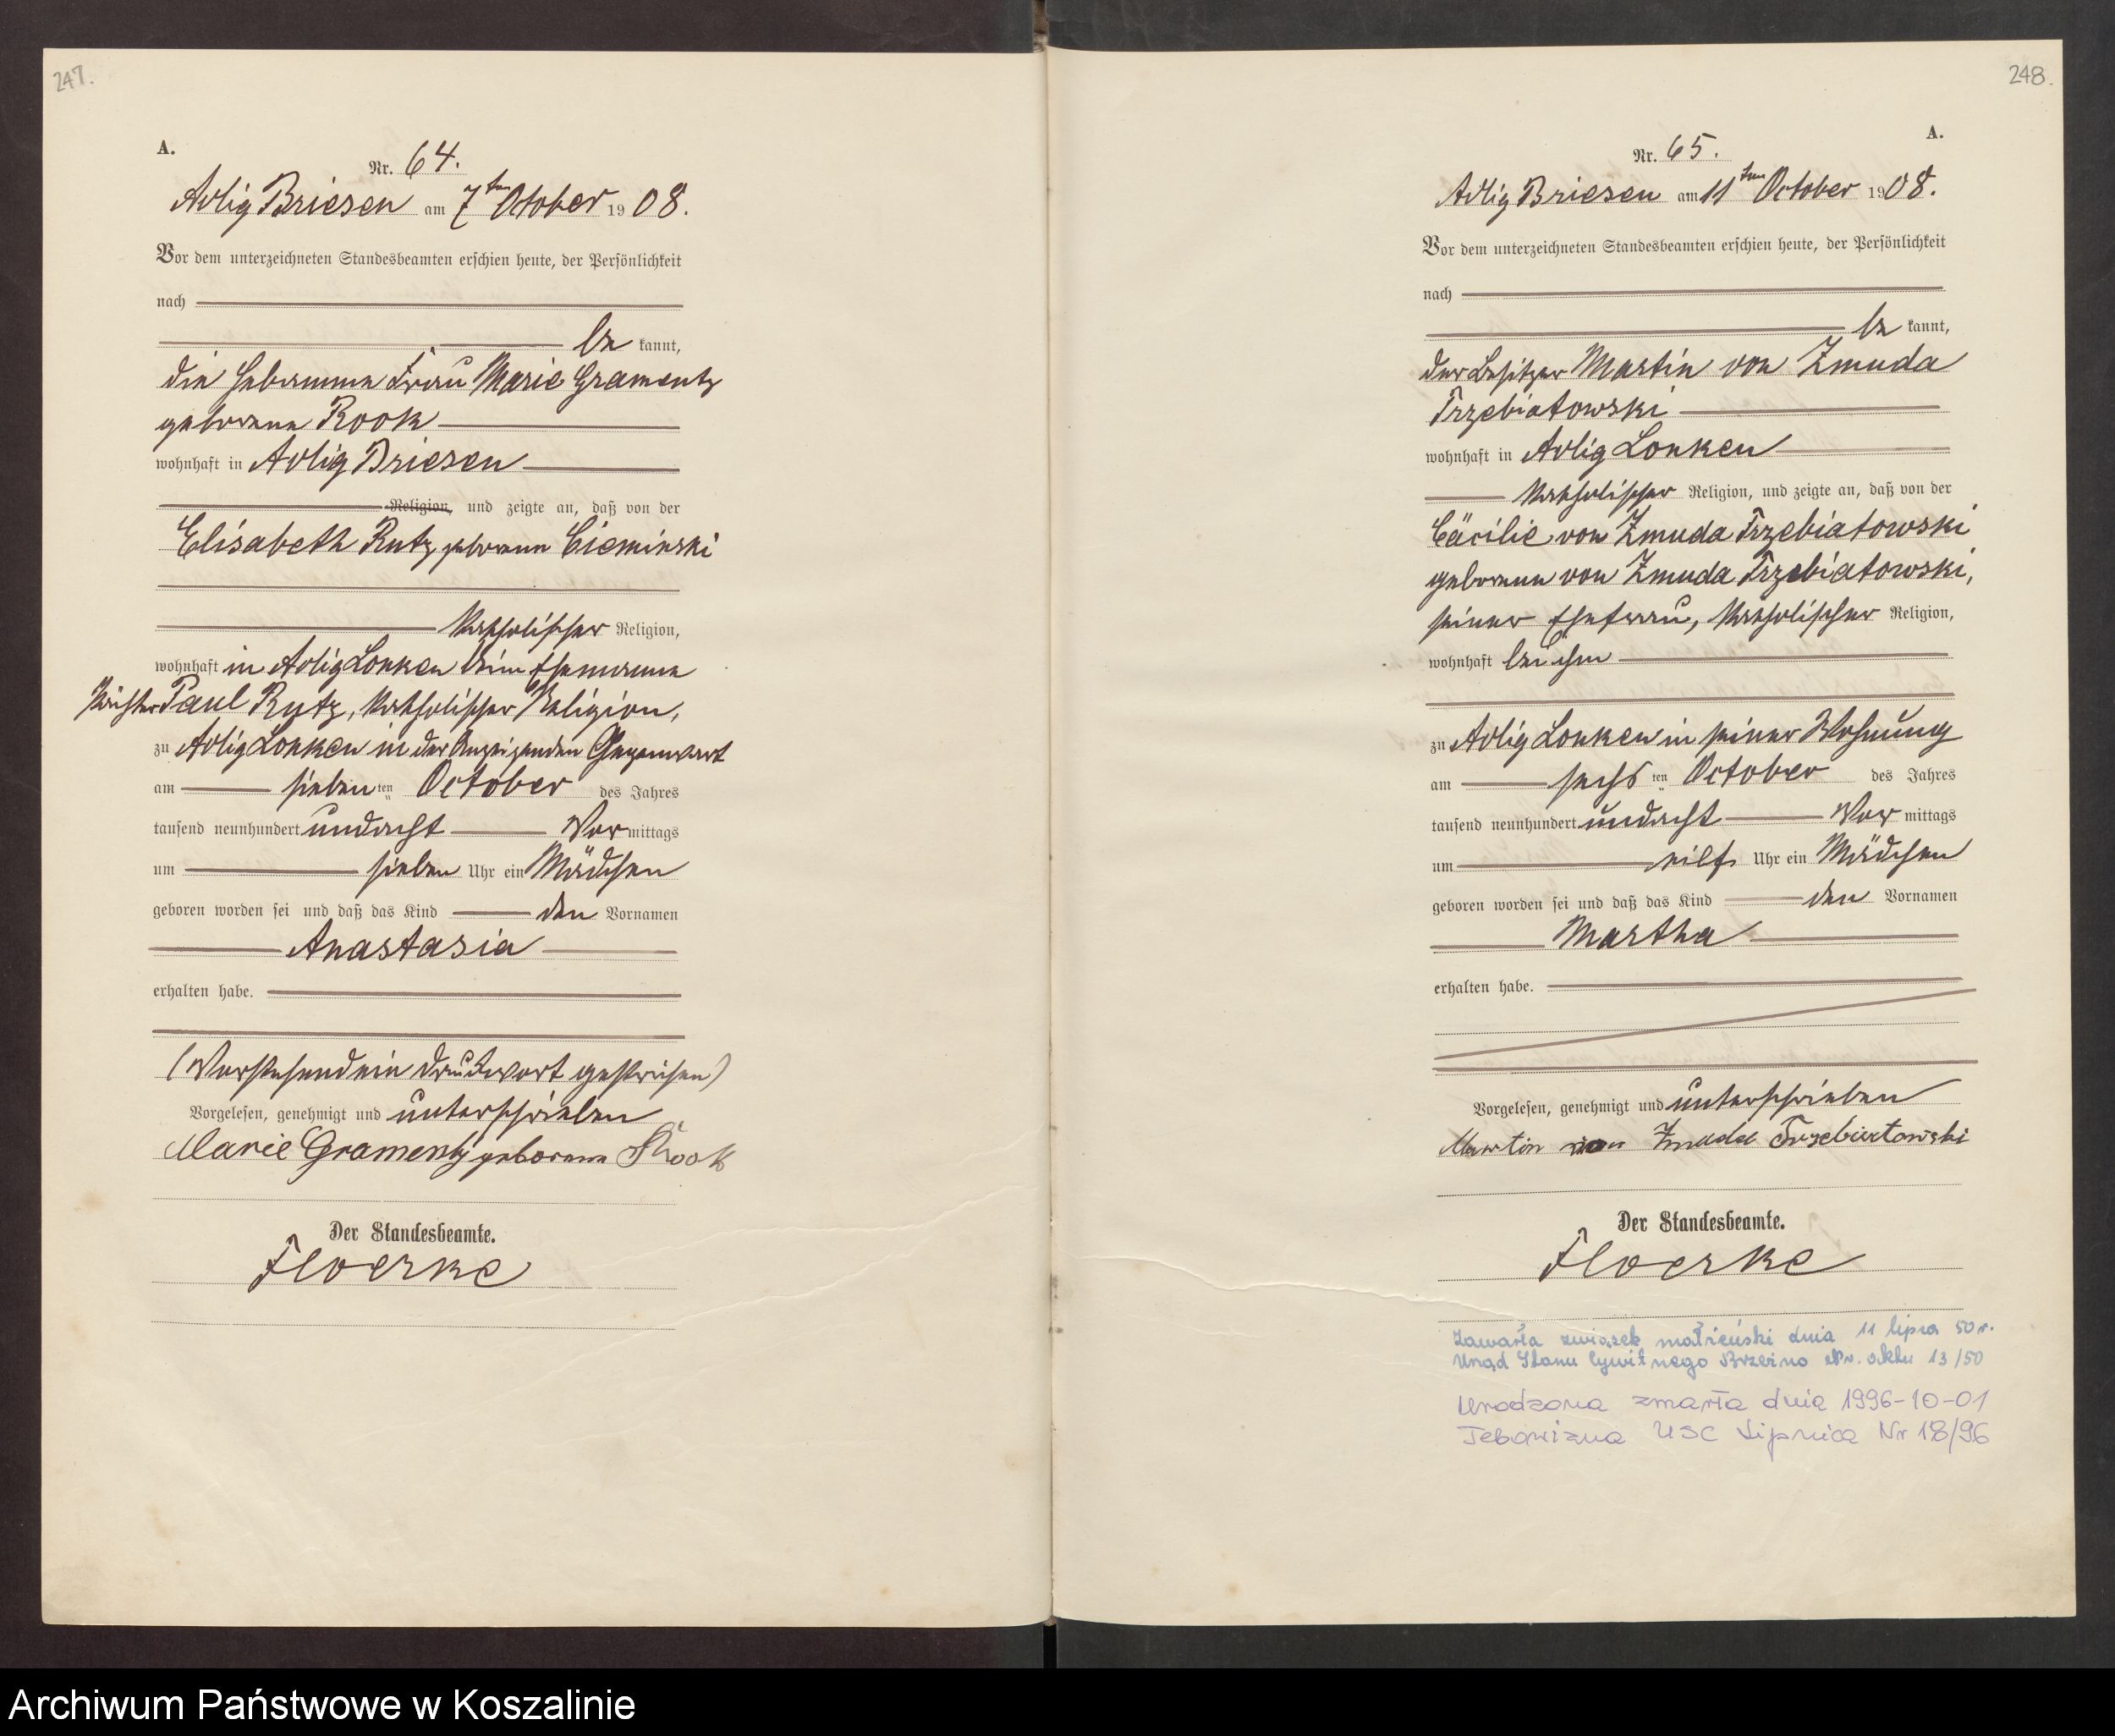 247.
A.
Nr. 64.
Adlig Briesen am 7ten October 1908.
Vor dem unterzeichneten Standesbeamten erschien heute, der Persönlichkeit
nach
be kannt,
die Hebamme Frau Marie Gramentz
geborene Rook
wohnhaft in Adlig Briesen
Religion, und zeigte an, daß von der
Elisabeth Rutz geborene Cieminski
katholischer Religion,
wohnhaft in Adlig Lonken beim Ehemanne
Paul Rutz, katholischer Religion,
zu Adlig Lonken in der Anzeigenden Gegenwart
am sieben ten October des Jahres
tausend neunhundert undacht Vor mittags
um sieben Uhr ein Mädchen
geboren worden sei und daß das Kind den Vornamen
Anastasia
erhalten habe.
(Vorstehend ein Druckwort gestrichen)
Vorgelesen, genehmigt und unterschrieben
Marie Gramentz geborene Rook
Der Standesbeamte.
Floerke
248.
A.
Nr. 65.
Adlig Briesen am 11ten October 1908.
Vor dem unterzeichneten Standesbeamten erschien heute, der Persönlichkeit
nach
be kannt,
der Besitzer Martin von Zmuda
Trzebiatowski
wohnhaft in Adlig Lonken
katholischer Religion, und zeigte an, daß von der
Cäcilie von Zmuda Trzebiatowski
geborene von Zmuda Trzebiatowski,
seiner Ehefrau, katholischer Religion,
wohnhaft bei ihm
zu Adlig Lonken in seiner Wohnung
am sechs ten October des Jahres
tausend neunhundert undacht Vor mittags
um eilf Uhr ein Mädchen
geboren worden sei und daß das Kind den Vornamen
Martha
erhalten habe.
Vorgelesen, genehmigt und unterschrieben
Martin von Zmuda Trzebiatowski
Der Standesbeamte.
Floerke
Zawarła związek małżeński dnia 11 lipca 50 r.
Urząd Stanu Cywilnego Brzeźno Nr. aktu 13/50
Urodzona zmarła dnia 1996-10-01
USC Lipnica Nr 18/96
Archiwum Państwowe w Koszalinie